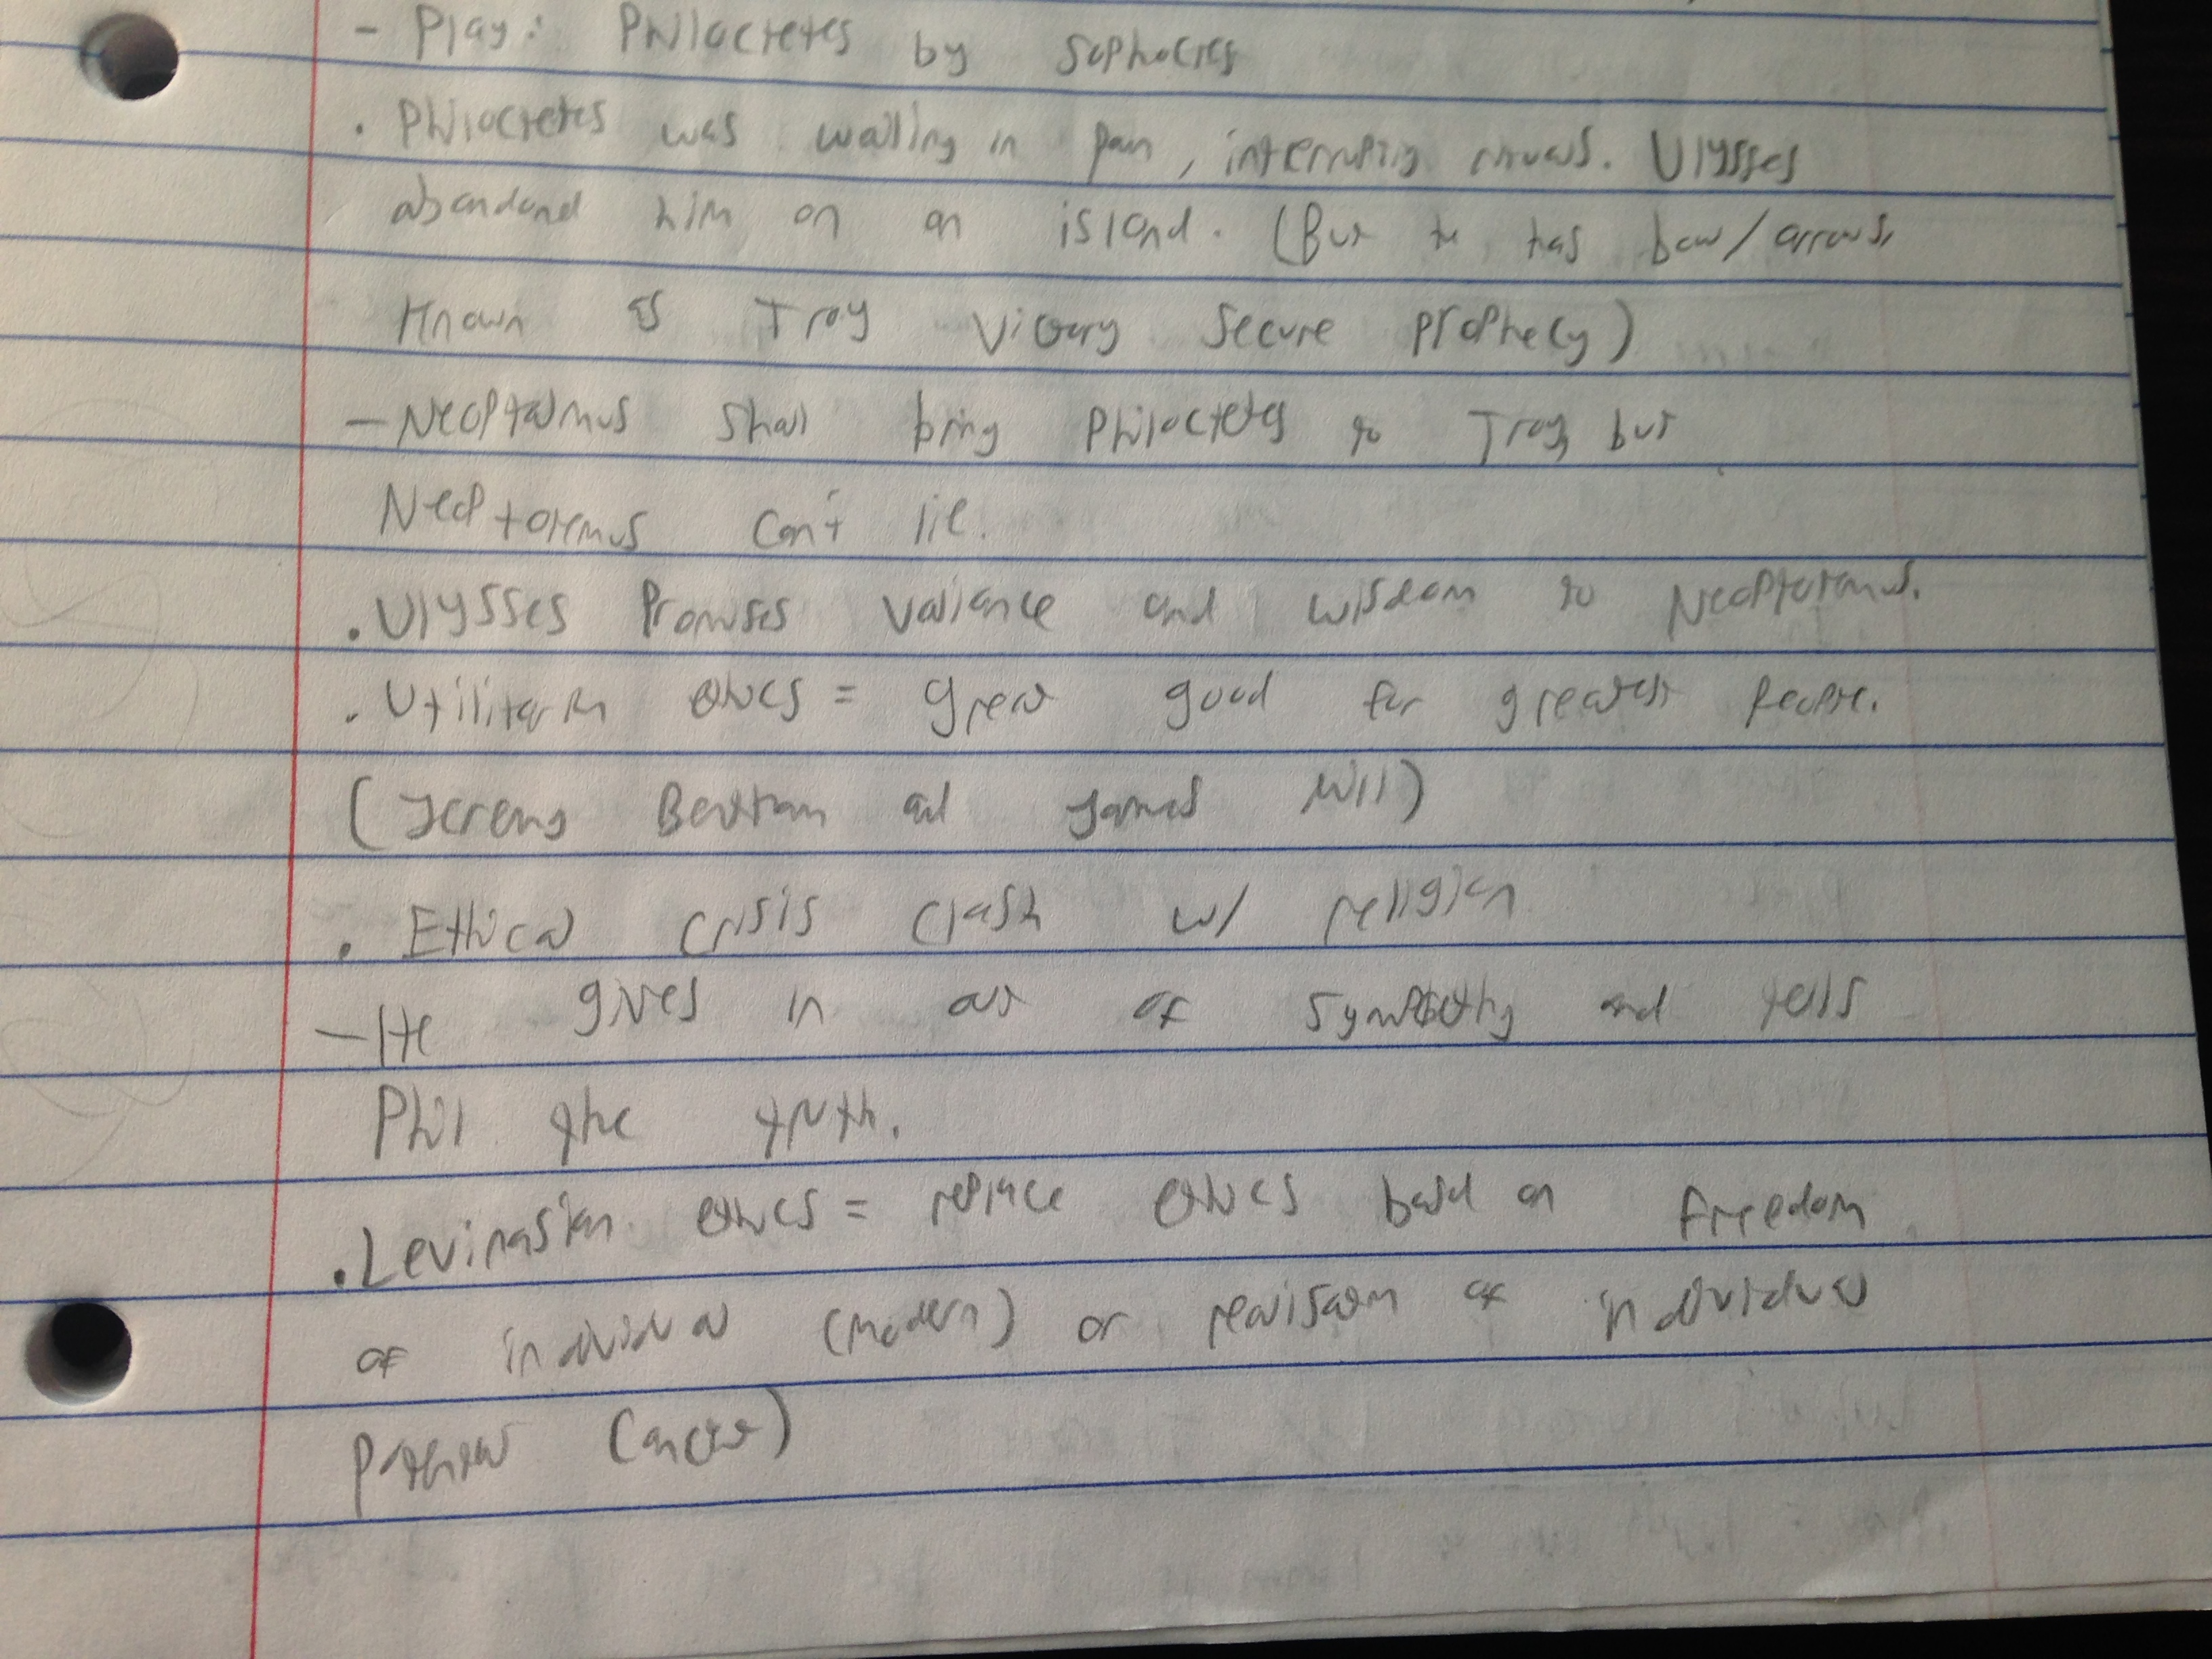 - Play: Philoctetes by Sophocles
. Philoctetes was wailing in pain, interrupting rituals. Ulysses
abandond him on an island. (But he has bow/arrows,
Known as Troy Victory Secure Prophecy)
- Neoptalmus shall bring Philoctetes to Troy, but
Neoptolemus can't lie.
. Ulysses Promises valiance and wisdom to Neoptolemus.
. Utilitarin ethics = great good for greatest people.
(Jeremy Bentham and James Mill)
. Ethical crisis clash w/ religion
- He gives in out of sympathy and tells
Phil the truth.
. Levinasian ethics = replace ethics based on freedom
of individual (modern) or realisation of individual
potential (ancient)